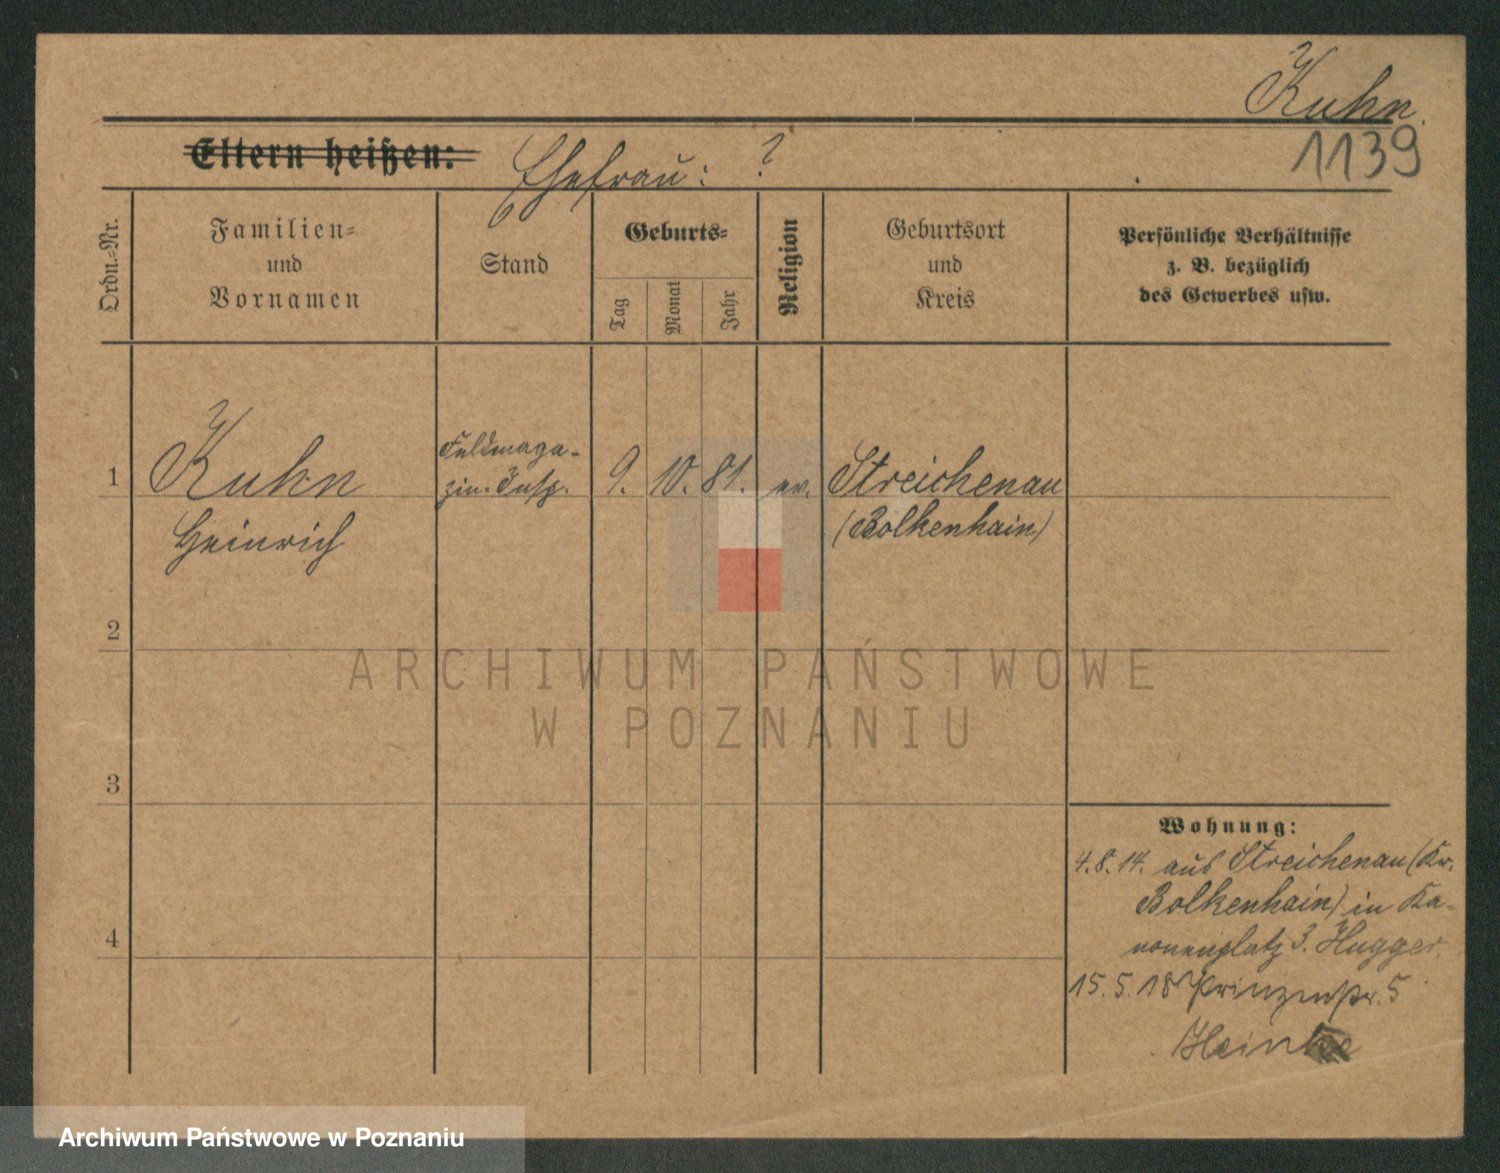 Kuhn.
1139
Eltern heißen: Ehefrau: ?
Ordn.-Nr.
Familien-
und
Vornamen
Stand
Geburts-
Tag
Monat
Jahr
Religion
Geburtsort
und
Kreis
Persönliche Verhältnisse
z. B. bezüglich
des Gewerbes usw.
1
Kuhn
Heinrich
Feldmaga-
zin-Insp.
9. 10. 81. ev.
Streichenau
(Bolkenhain)
2
3
4
Wohnung:
4.8.14. aus Streichenau (Kr.
Bolkenhain) in Ka-
nonenplatz 3. Hugger.
15.5.18 Prinzenstr. 5
Heinke
ARCHIWUM PAŃSTWOWE
W POZNANIU
Archiwum Państwowe w Poznaniu